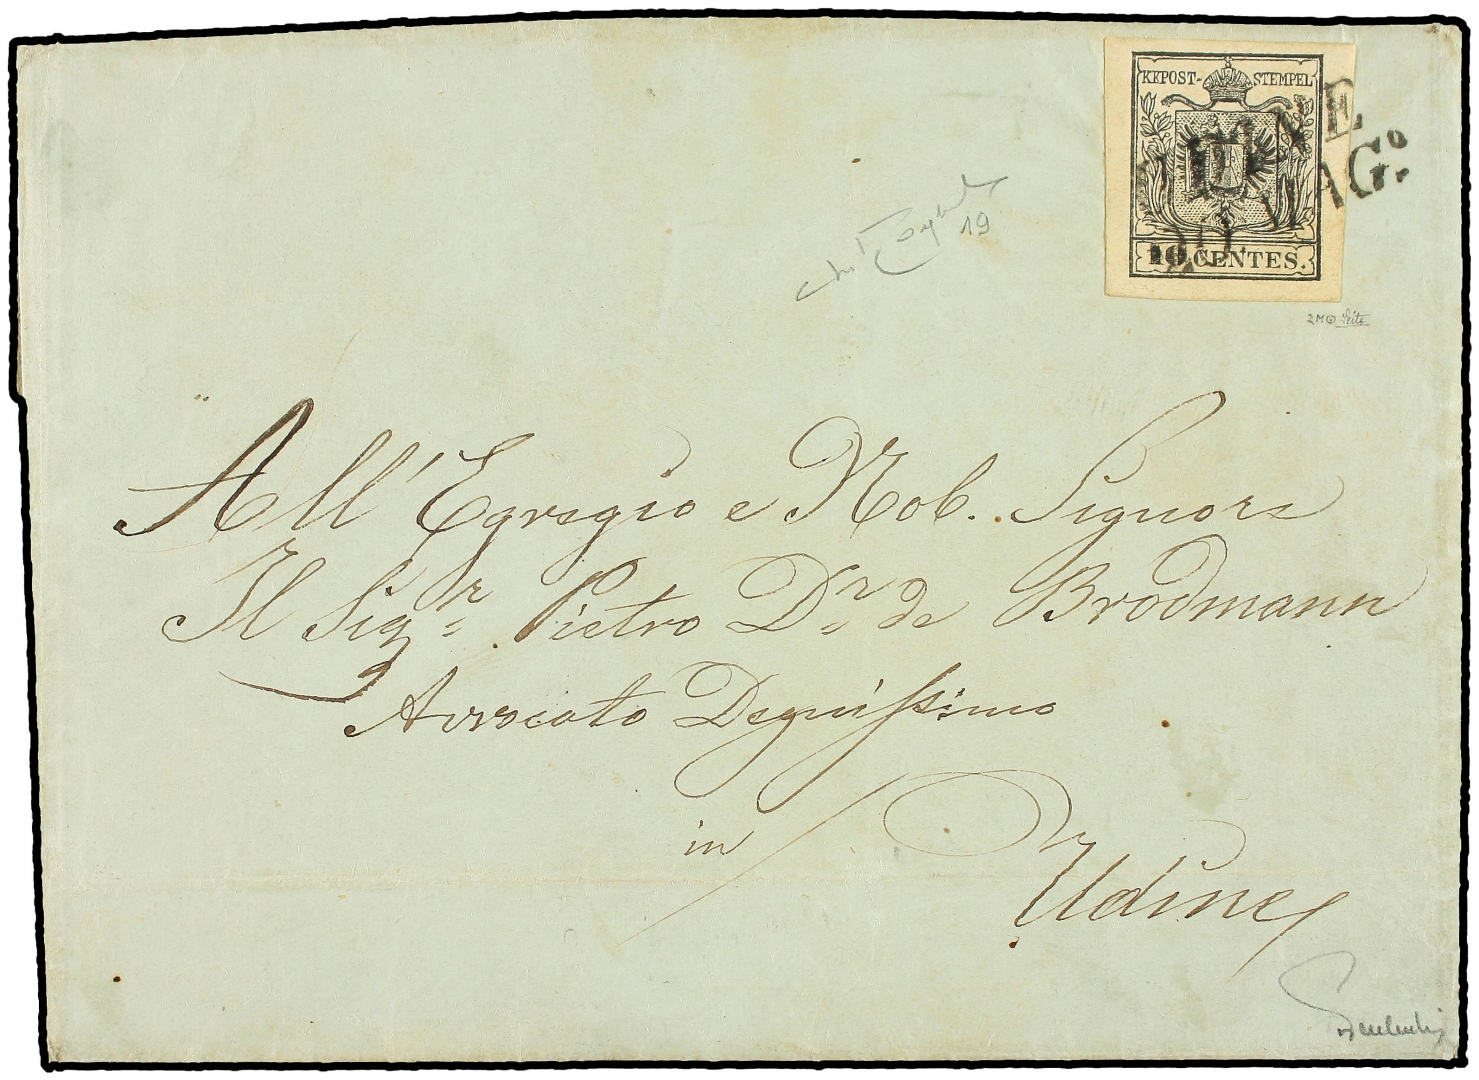 KKPOST- STEMPEL
UDINE
MAG.º
10 CENTES.
19
All' Egregio e Nob. Signore
Il Sigr. Pietro Dr. de Brodmann
Avvocato Degnissimo
in
Udine